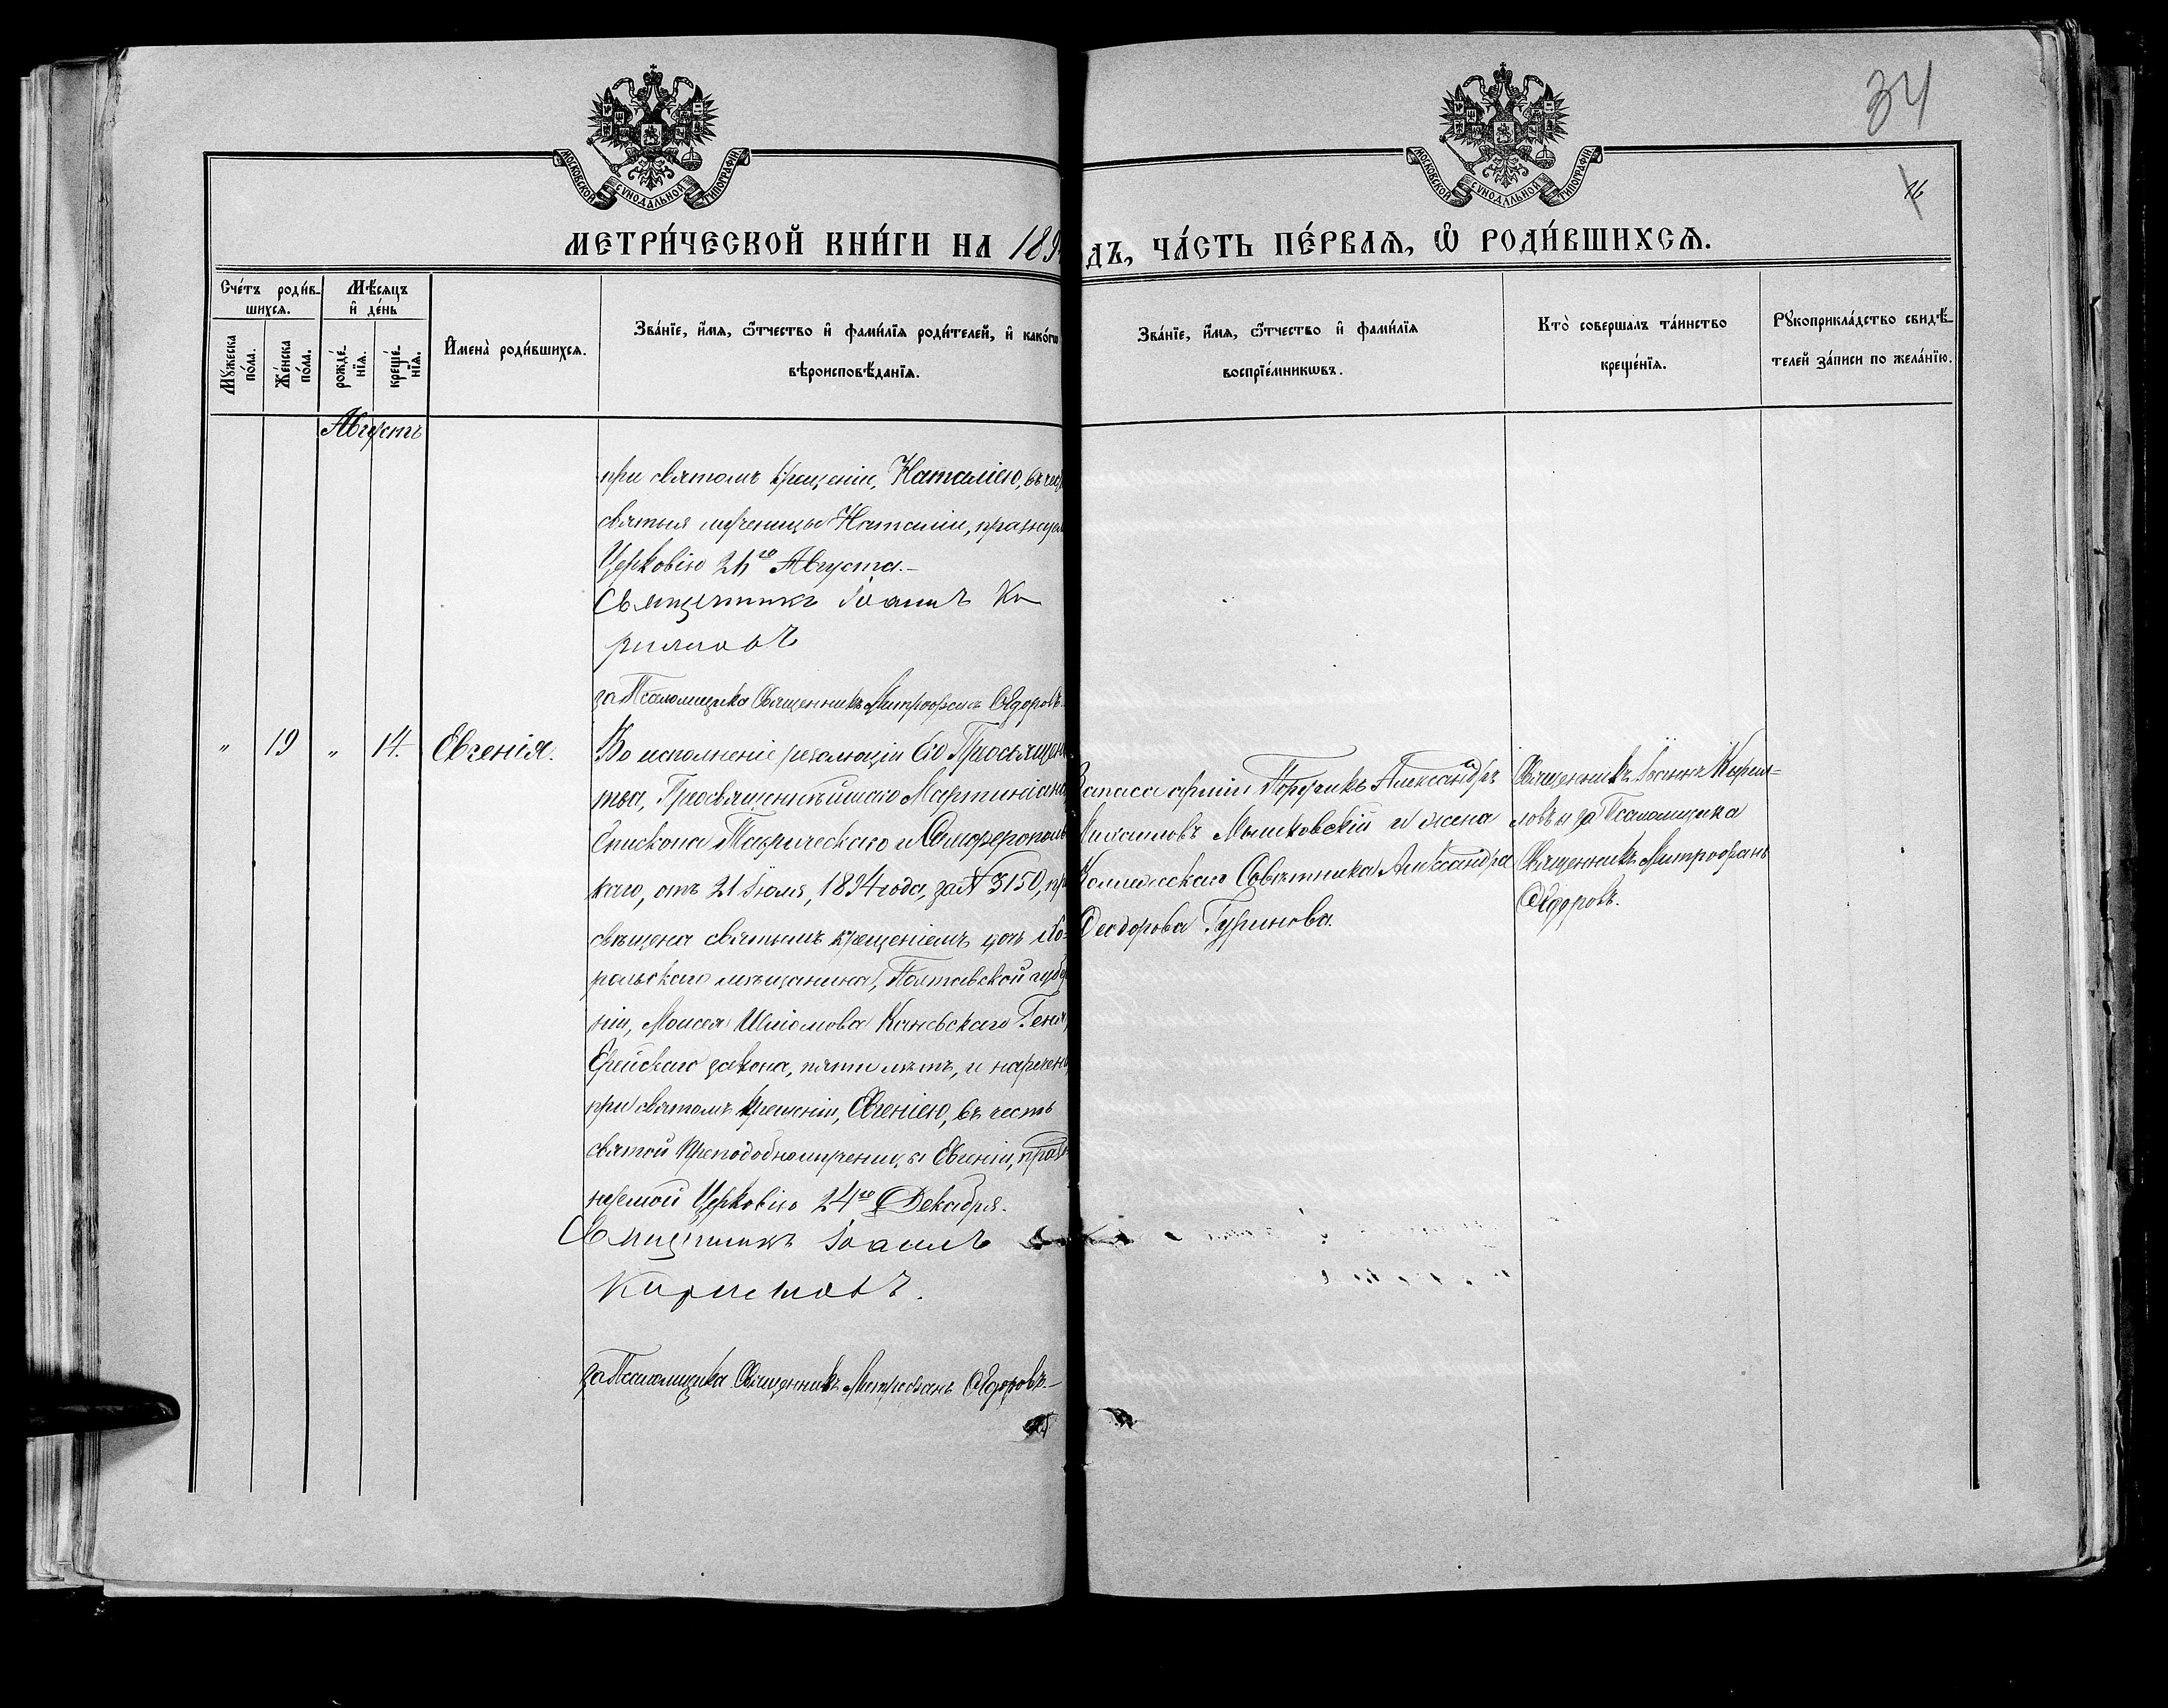 34
16
МОСКОВСКОЙ СѴНОДАЛЬНОЙ ТИПОГРАФІИ
МОСКОВСКОЙ СѴНОДАЛЬНОЙ ТИПОГРАФІИ
МЕТРИ́ЧЕСКОЙ КНИ́ГИ НА 189
ДЪ, ЧА́СТЬ ПЕ́РВАѦ, Ѡ҆ РОДИ́ВШИХСѦ.
Сче́тъ роди́в-
шихсѧ.
Мꙋжеска по́ла.
Же́нска по́ла.
Мѣсѧцъ
и҆ де́нь
рожде́-
нїѧ.
креще́-
нїѧ.
И҆мена̀ роди́вшихсѧ.
Зва́нїе, и҆́мѧ, ѻ҆́тчество и҆ фами́лїѧ роди́телей, и҆ како́гѡ
вѣроисповѣ́данїѧ.
Зва́нїе, и҆́мѧ, ѻ҆́тчество и҆ фами́лїѧ
воспрїе́мникѡвъ.
Кто̀ соверша́лъ та́инство
креще́нїѧ.
Рꙋкоприкла́дство свидѣ́-
телей за́писи по жела́нїю.
Августъ
при святомъ крещеніи, Наталіею, въ чес
святыя мученицы Наталіи, празнуем
Церковію 26го Августа.-
Священникъ Іоаннъ Ки
рилловъ
за Псаломщика Священникъ Митрофанъ Ѳедоровъ.
" 19 " 14. Евгенія.
Во исполненіе резолюціи Его Преосвящен
тва, Преосвященнѣйшаго Мартиніана,
Епископа Таврическаго и Симферополь
каго, отъ 21 Іюля, 1894 года, за № 3150, пр
свѣщена святымъ крещеніемъ дочь Хо-
рольскаго мѣщанина, Полтавской губер
ніи, Моисея Шліомова Каневскаго Геня,
Еврейскаго закона, пяти лѣтъ, и наречена
при святомъ Крещеніи, Евгеніею, въ честь
святой Преподобномученицы Евгеніи, праз
нуемой Церковію 24го Декабря.
Священникъ Іоаннъ
Кирилловъ.
за Псаломщика Священникъ Митрофанъ Ѳедоровъ.-
Запаса арміи Поручикъ Александръ
Михаиловъ Мышковскій и жена
Коллежскаго Совѣтника Александра
Ѳеодорова Гуринова.
Священникъ Іоаннъ Кирил=
ловъ и за Псаломщика
Священникъ Митрофанъ
Ѳедоровъ.